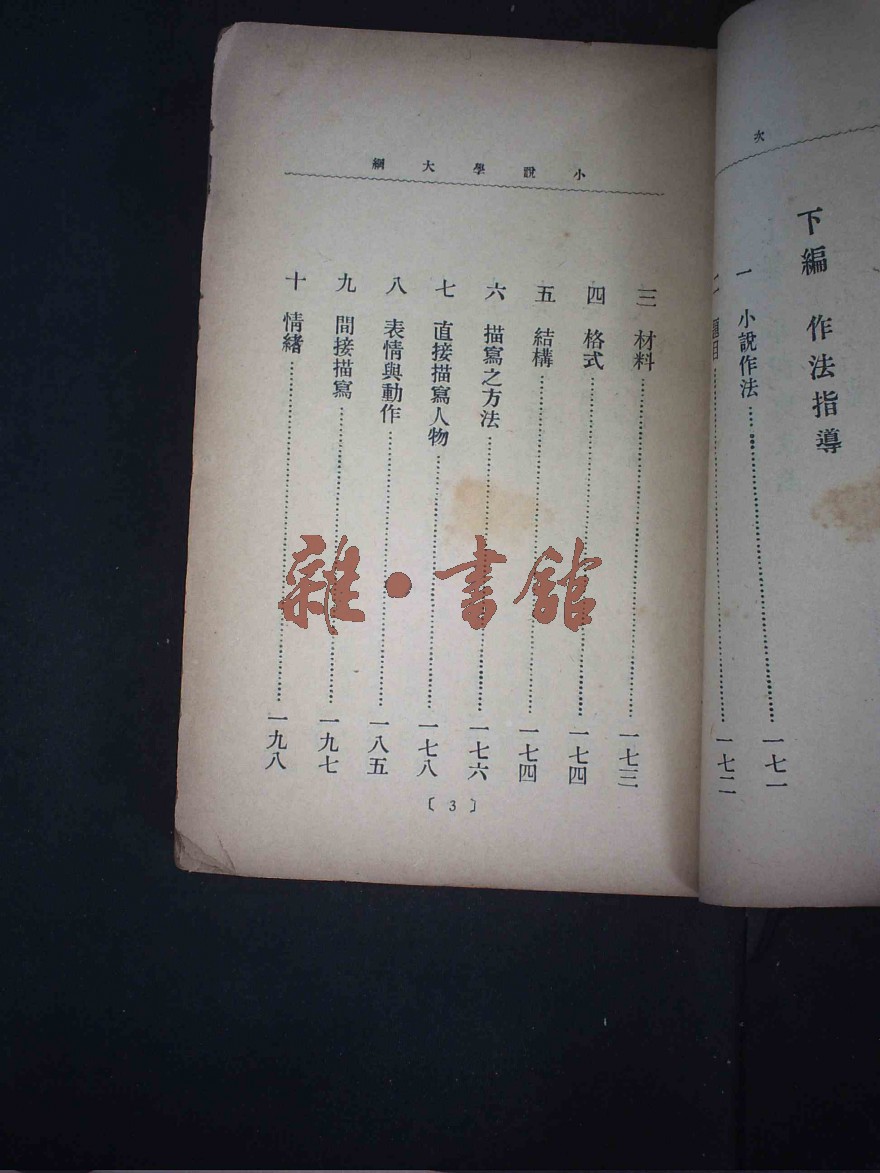 次
下編 作法指導
一 小說作法……一七一
二 題目……一七二
小說學大綱
三 材料……一七三
四 格式……一七四
五 結構……一七四
六 描寫之方法……一七六
七 直接描寫人物……一七八
八 表情與動作……一八五
九 間接描寫……一九七
十 情緒……一九八
〔3〕
雜·書館